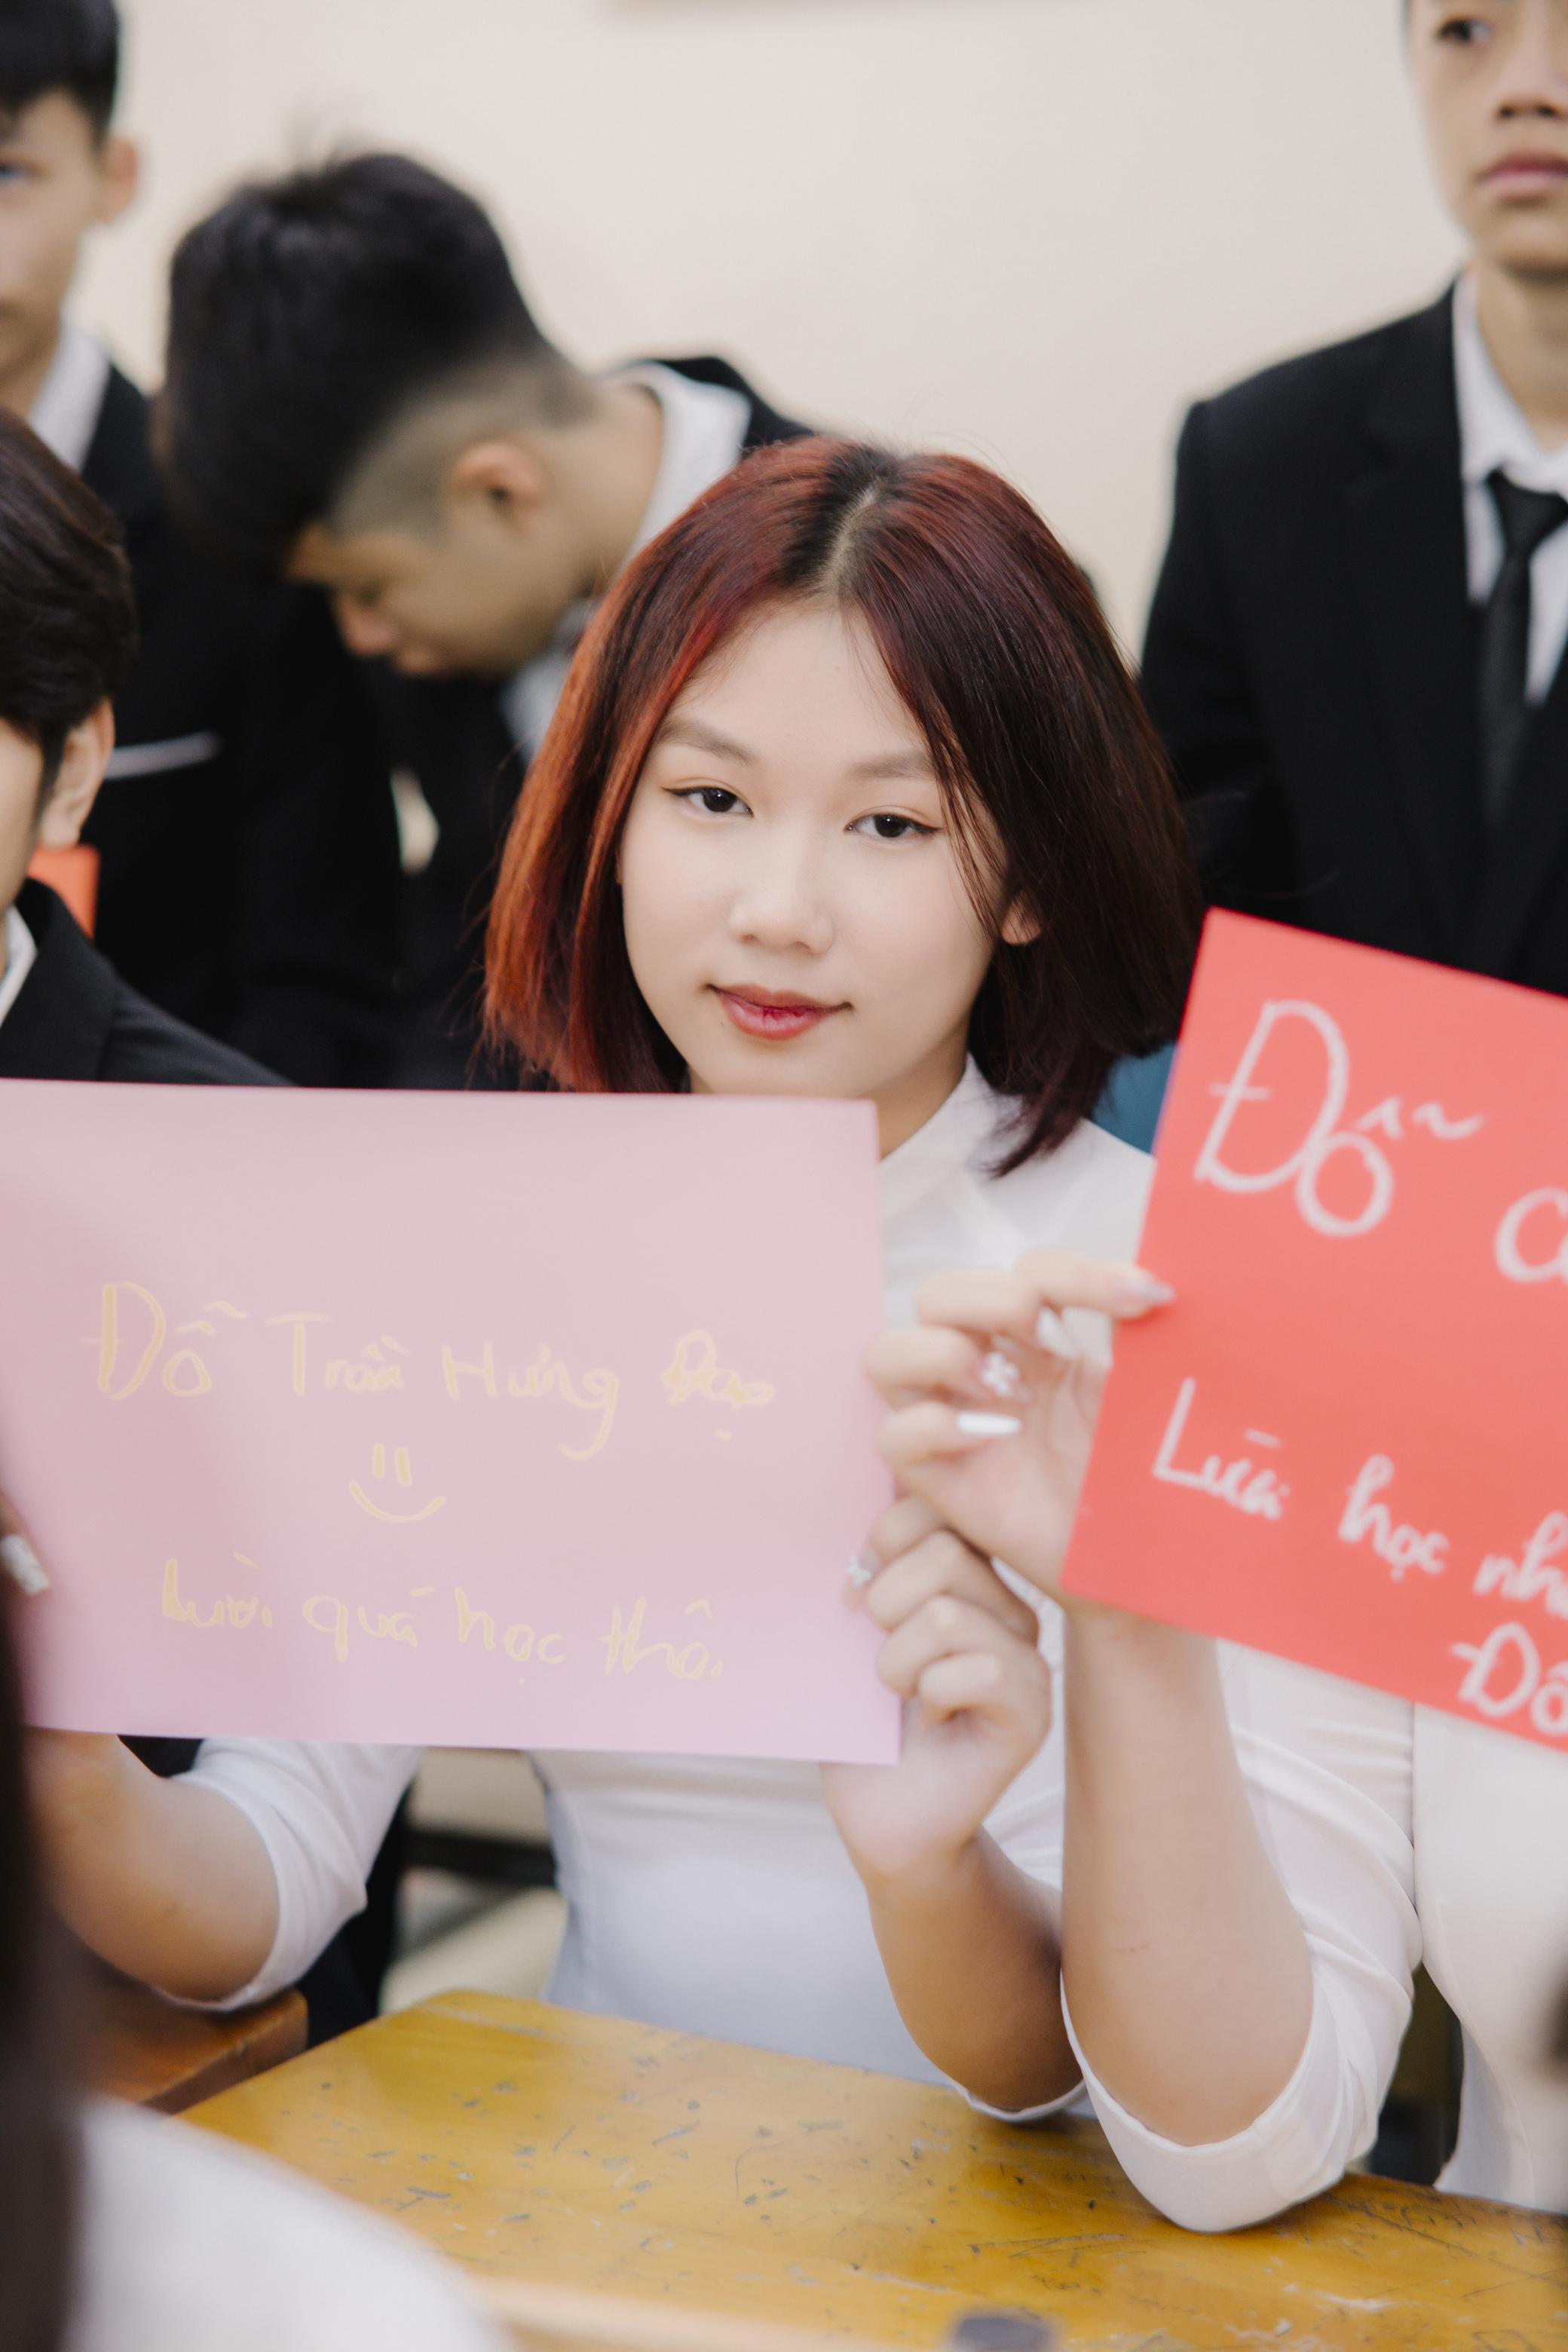 Đỗ Trần Hưng Đạo
Lười quá học thôi
Đỗ
Lười học nh
Đỗ